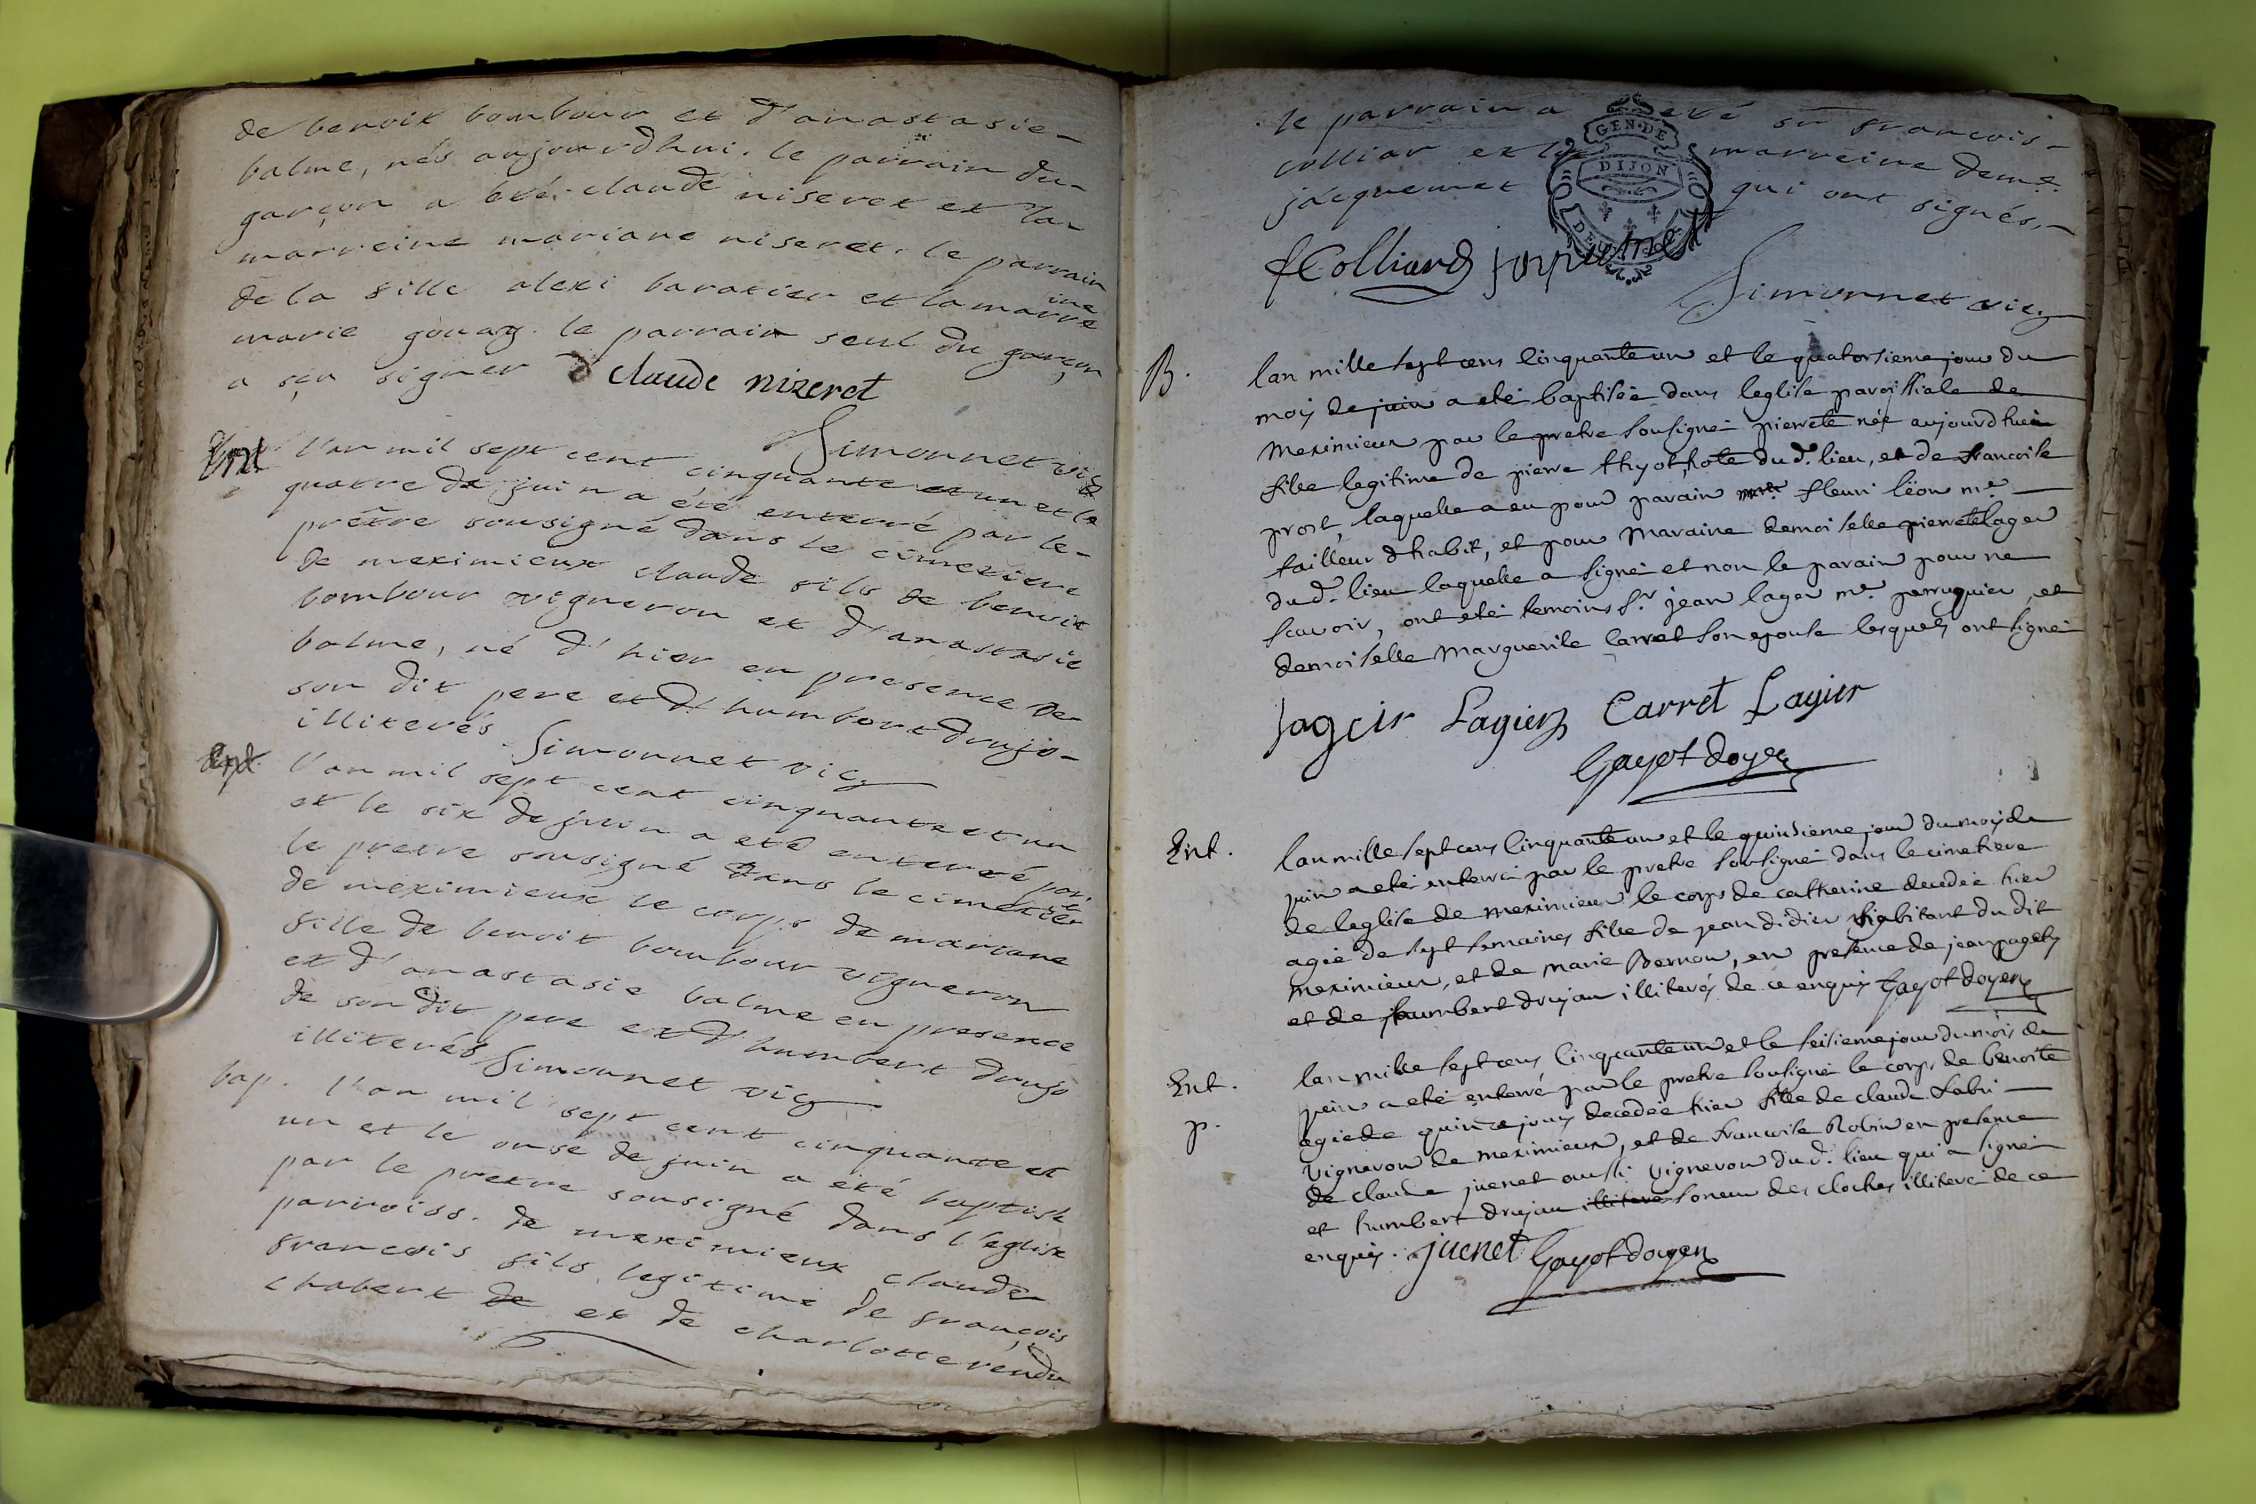 de benoit bombour et d'anastasie
balme, nés aujourdhui. le parrain du
garçon a été claude niseret et la
marreine mariane niseret. le parrain
de la fille alexi baratier et la marreine
marie gouay. le parrain seul du garçon
a sçu signer claude nizeret
Simonnet vic
Ent l'an mil sept cent cinquante et un et le
quatre de juin a été enterré par le
prêtre sousigné dans le cimetiere
de meximieux claude fils de benoit
bombour vigneron et d'anastasie
balme, né d'hier en presence de
son dit pere et d'humbert drujo
illiterés Simonnet vic
Ent. l'an mil sept cent cinquante et un
et le six de juin a eté enterré par
le pretre sousigné dans le cimetier
de meximieux le corps de mariane
fille de benoit bombour vigneron
et d'anastasie balme en presence
de son dit pere et d'humbert drujo
illiterés Simonnet vic
bap. l'an mil sept cent cinquante et
un et le onse de juin a eté baptisé
par le pretre sousigné dans l'eglise
parroiss. de meximieux claude
francois fils legitime de françois
chabert de et de charlotte rendu
le parrain a eté sr francois
colliar et la marreine demle
jacquemet qui ont signés,
GEN. DE
DIJON
fColliard jaquemet
Simonnet vic
B. lan mille sept cens cinquante un et le quatorsieme jour du
mois de juin a eté baptisée dans leglise paroissiale de
meximieux par le pretre sousigné pierrete née aujourdhui
fille legitime de pierre thyot, hote du d. lieu, et de francoise
prost, laquelle a eu pour parain fleuri léon me
tailleur dhabit, et pour maraine demoiselle pierrete lager
du d. lieu laquelle a signé et non le parain pour ne
scavoir, ont eté temoins sr jean lager me perruquier et
demoiselle marguerite carret son epouse lesquels ont signé
Lagier Carret Lagier
Gayot doyen
Ent. lan mille sept cens cinquante un et le quinsieme jour du mois de
juin a eté enterré par le pretre sousigné dans le cimetiere
de leglise de meximieux le corps de catherine decedée hier
agée de sept semaines fille de jean didier habitant du dit
meximieux, et de marie Bernou, en presence de jean pagets
et de humbert drujau illiterés de ce enquis Gayot doyen
Ent. lan mille sept cens cinquante un et le seisieme jour du mois de
p. juin a eté enterré par le pretre sousigné le corps de benoite
agée de quinze jours decedée hier fille de claude Labri
vigneron de meximieux, et de francoise Robin en presence
de claude juenet aussi vigneron du d. lieu qui a signé
et humbert drujau illiteré soneur des cloches illiteré de ce
enquis. juenet Gayot doyen